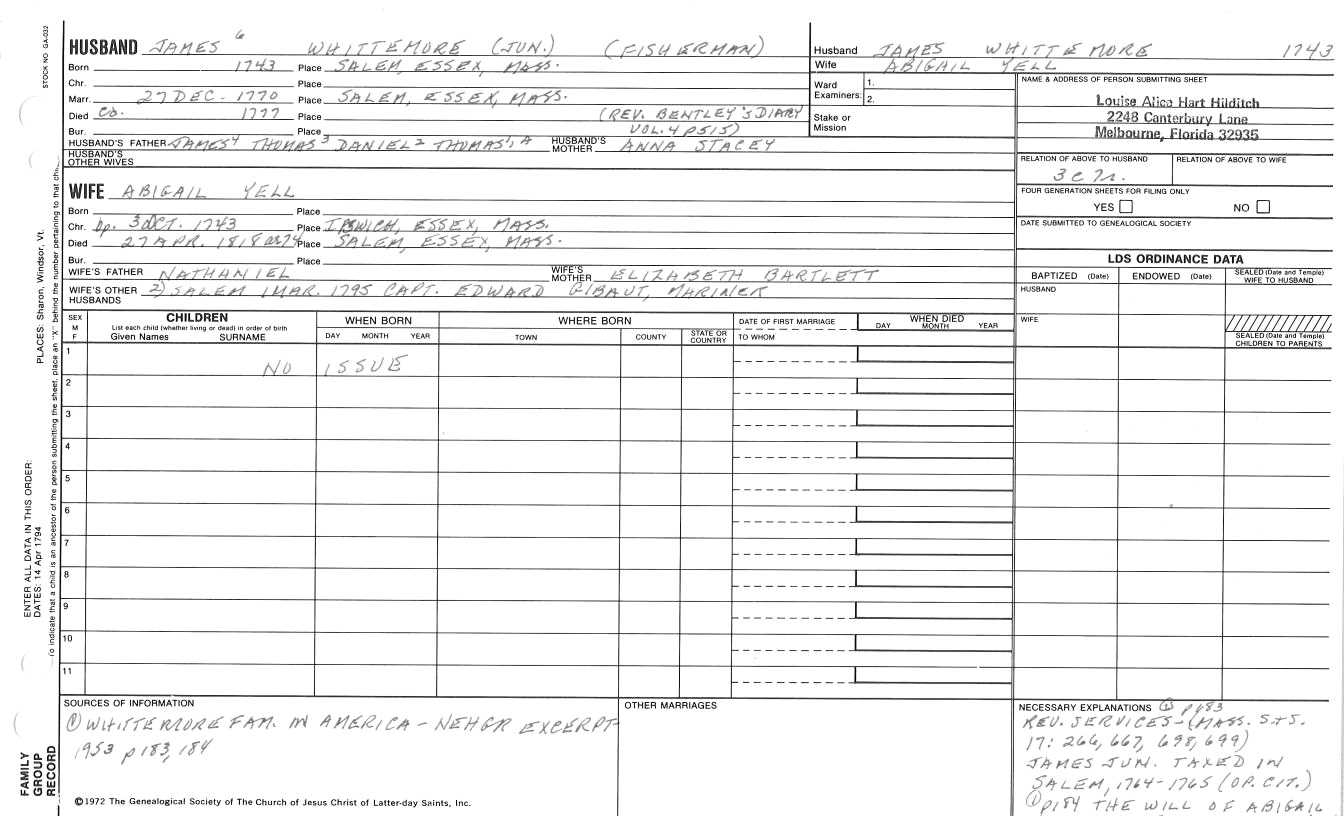 STOCK NO GA-032
PLACES: Sharon, Windsor, Vt.
ENTER ALL DATA IN THIS ORDER:
DATES: 14 Apr 1794
To indicate that a child is an ancestor of the person submitting the sheet, place an "X" behind the number pertaining to that
FAMILY GROUP RECORD
HUSBAND JAMES 6 WHITTEMORE (JUN.) (FISHERMAN)
Born 1743 Place SALEM, ESSEX, MASS.
Chr. Place
Marr. 27 DEC - 1770 Place SALEM, ESSEX, MASS.
Died Ca. 1777 Place (REV. BENTLEY'S DIARY
Bur. Place VOL. 4 P515)
HUSBAND'S FATHER JAMES4 THOMAS3 DANIEL2 THOMAS1, A HUSBAND'S MOTHER ANNA STACEY
HUSBAND'S OTHER WIVES
WIFE ABIGAIL YELL
Born Place
Chr. bp. 3 OCT. 1743 Place IPSWICH, ESSEX, MASS.
Died 27 APR. 1818 Place SALEM, ESSEX, MASS.
Bur. Place
WIFE'S FATHER NATHANIEL WIFE'S MOTHER ELIZABETH BARTLETT
WIFE'S OTHER HUSBANDS 2) SALEM 1 MAR. 1795 CAPT. EDWARD GIBAUT, MARINER
Husband JAMES WHITTEMORE 1743
Wife ABIGAIL YELL
Ward Examiners: 1.
2.
Stake or Mission
NAME & ADDRESS OF PERSON SUBMITTING SHEET
Louise Alica Hart Hilditch
2248 Canterbury Lane
Melbourne, Florida 32935
RELATION OF ABOVE TO HUSBAND RELATION OF ABOVE TO WIFE
3 C 7r.
FOUR GENERATION SHEETS FOR FILING ONLY
YES NO
DATE SUBMITTED TO GENEALOGICAL SOCIETY
LDS ORDINANCE DATA
BAPTIZED (Date) ENDOWED (Date) SEALED (Date and Temple) WIFE TO HUSBAND
HUSBAND
WIFE
SEALED (Date and Temple) CHILDREN TO PARENTS
SEX M F CHILDREN WHEN BORN WHERE BORN DATE OF FIRST MARRIAGE WHEN DIED
List each child (whether living or dead) in order of birth
Given Names SURNAME DAY MONTH YEAR TOWN COUNTY STATE OR COUNTRY TO WHOM DAY MONTH YEAR
1 NO ISSUE
2
3
4
5
6
7
8
9
10
11
SOURCES OF INFORMATION
① WHITTEMORE FAM. IN AMERICA - NEHGR EXCERPT
1953 p183, 184
©1972 The Genealogical Society of The Church of Jesus Christ of Latter-day Saints, Inc.
OTHER MARRIAGES
NECESSARY EXPLANATIONS ① p183
REV. SERVICES - (MASS. S+S.
17: 266, 667, 698, 699)
JAMES JUN. TAXED IN
SALEM, 1764-1765 (OP. CIT.)
① p184 THE WILL OF ABIGAIL